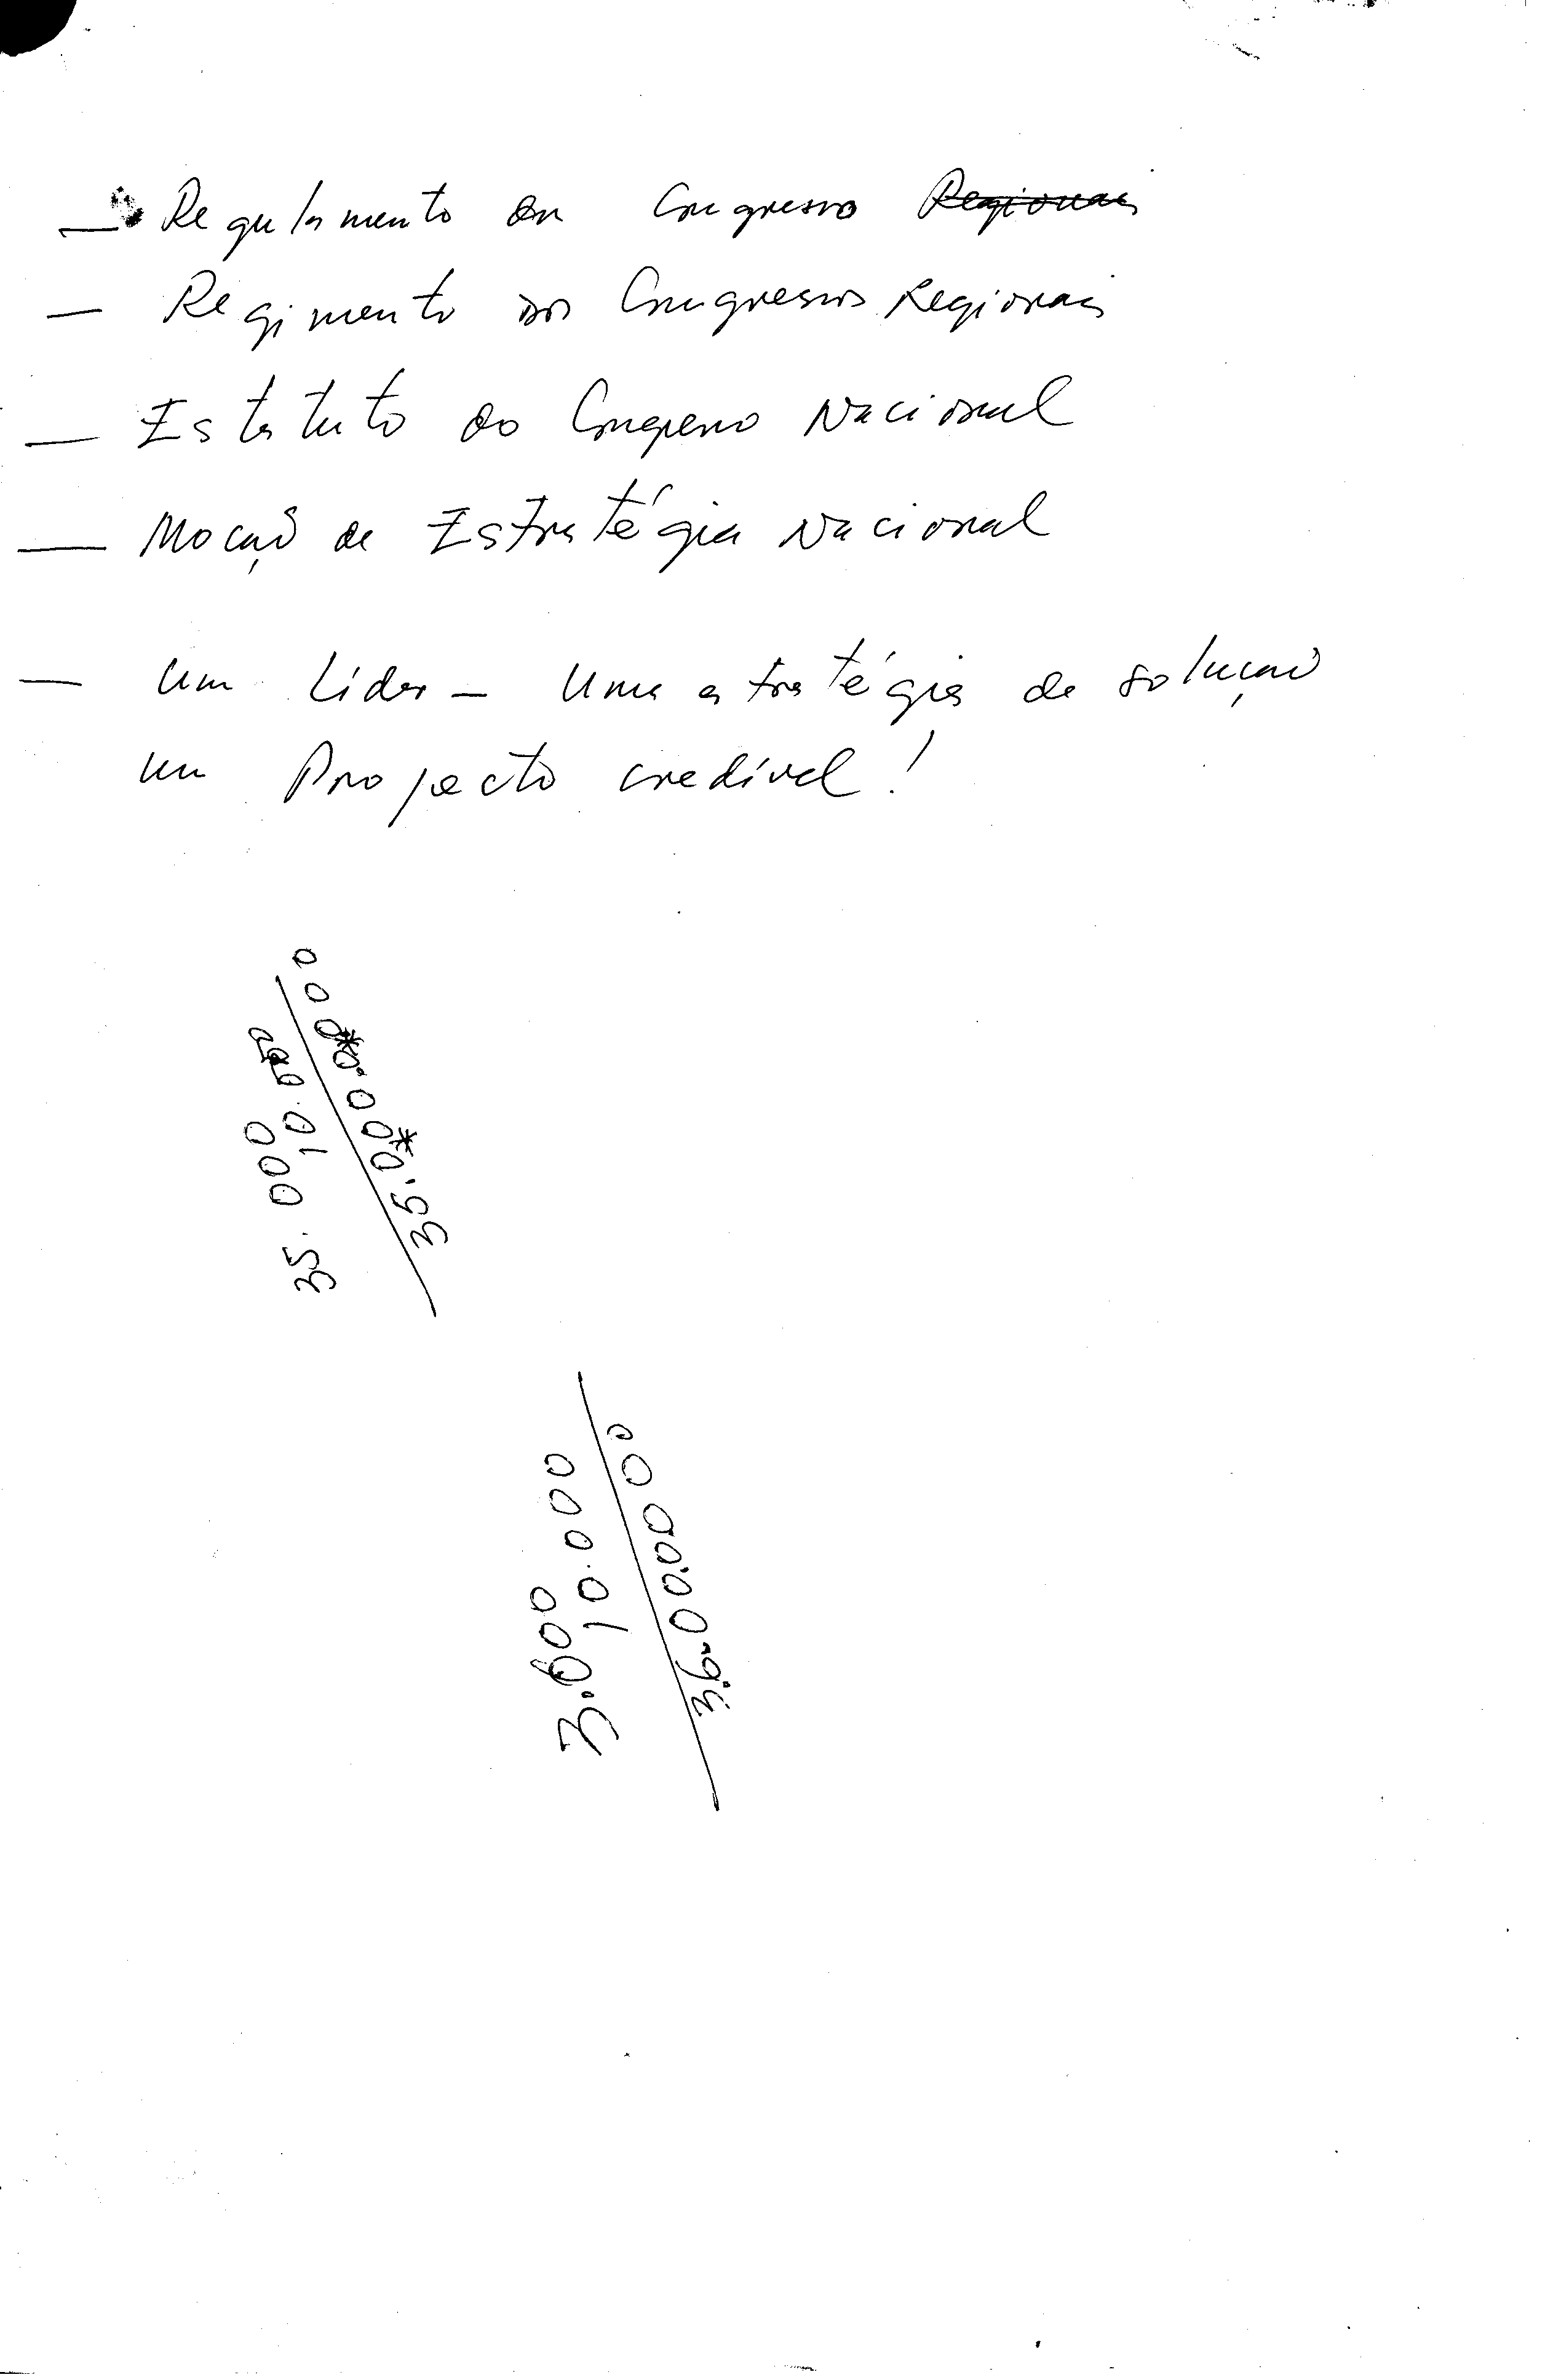 — Regulamento do Congresso Regionais
— Regimento dos Congressos Regionais
— Estatuto do Congresso Nacional
— Moção de Estratégia Nacional
— Um Líder — Uma estratégia de solução
um Projecto credível!
35.000
10.000
35.000.0000
3.600
10.000
36.000.000